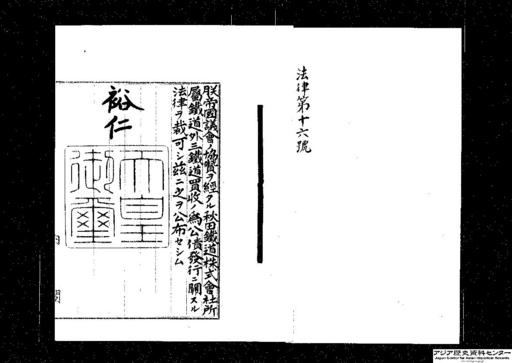 法律第十六號
朕帝國議會ノ協贊ヲ經タル秋田鐵道株式會社所
屬鐵道外三鐵道買收ノ爲公債發行ニ關スル
法律ヲ裁可シ茲ニ之ヲ公布セシム
裕仁
天皇
御璽
内閣
アジア歴史資料センター
Japan Center for Asian Historical Records